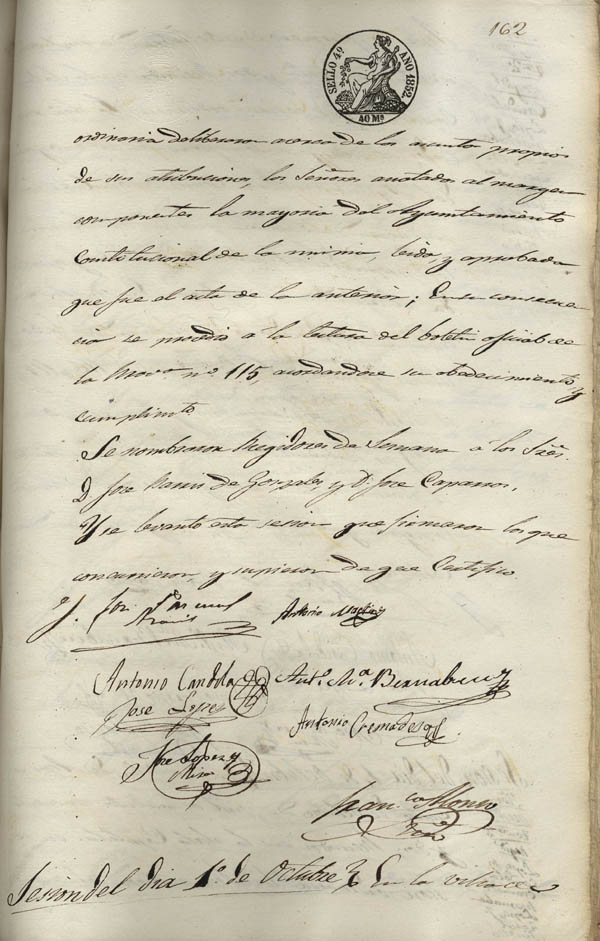 162
SELLO 4º AÑO 1852.
40 Mˢ
ordinaria deliberaron acerca de los asuntos propios
de sus atribuciones, los Señores anotados al margen
componentes la mayoria del Ayuntamiento
Constitucional de la misma, leida y aprobada
que fue el acta de la anterior; En su consecuen
cia se procedio a la lectura del boletin oficial de
la Provª nº 115, acordandose su obedecimiento y
cumplimto
Se nombraron Regidores de Semana á los Sres.
D. Jose de Gonzales y D. Jose Caparros,
Y se levanto esta sesion que firmaron los que
concurrieron, y supieron de que Certifico
Antonio
Antonio Candela Antº Mª Bernabeu
Jose Lopez Antonio Cremades
Jose Lopez y
Franco Alonso
Sesion del dia 1º de Octubre En la villa de